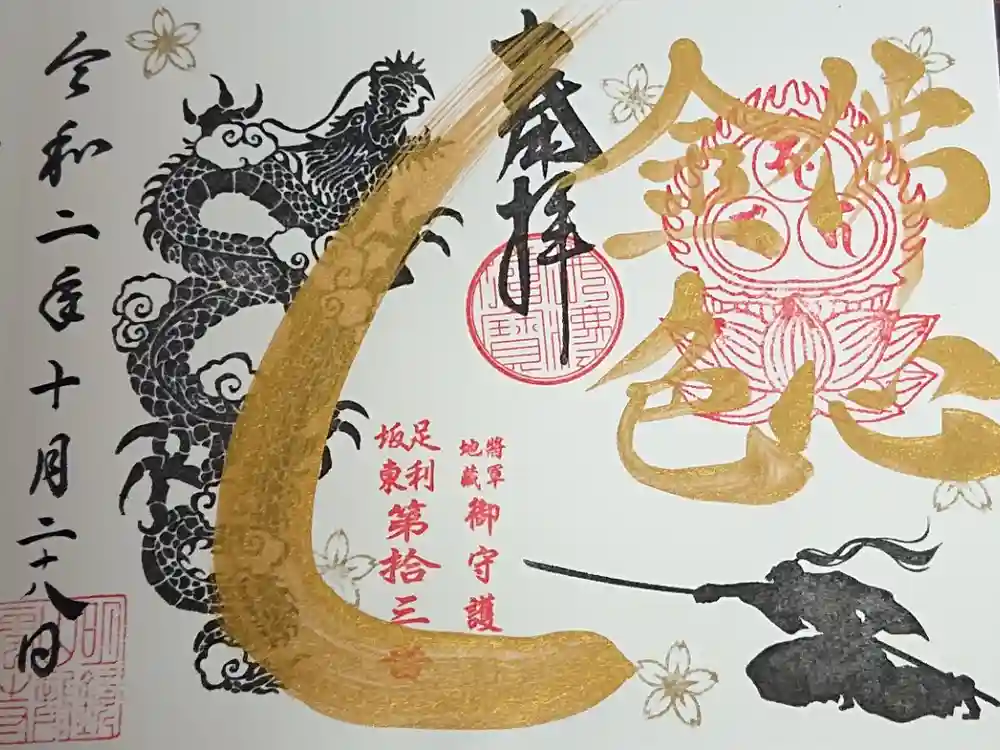 金色
奉拝
佛法僧寶
將軍
地蔵
御守護
足利
坂東
第拾三番
令和二年十月二十八日